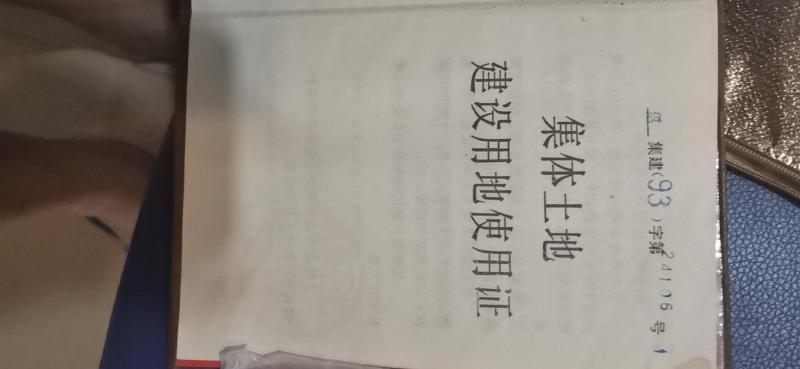 集建(93)字第24106号
集体土地
建设用地使用证